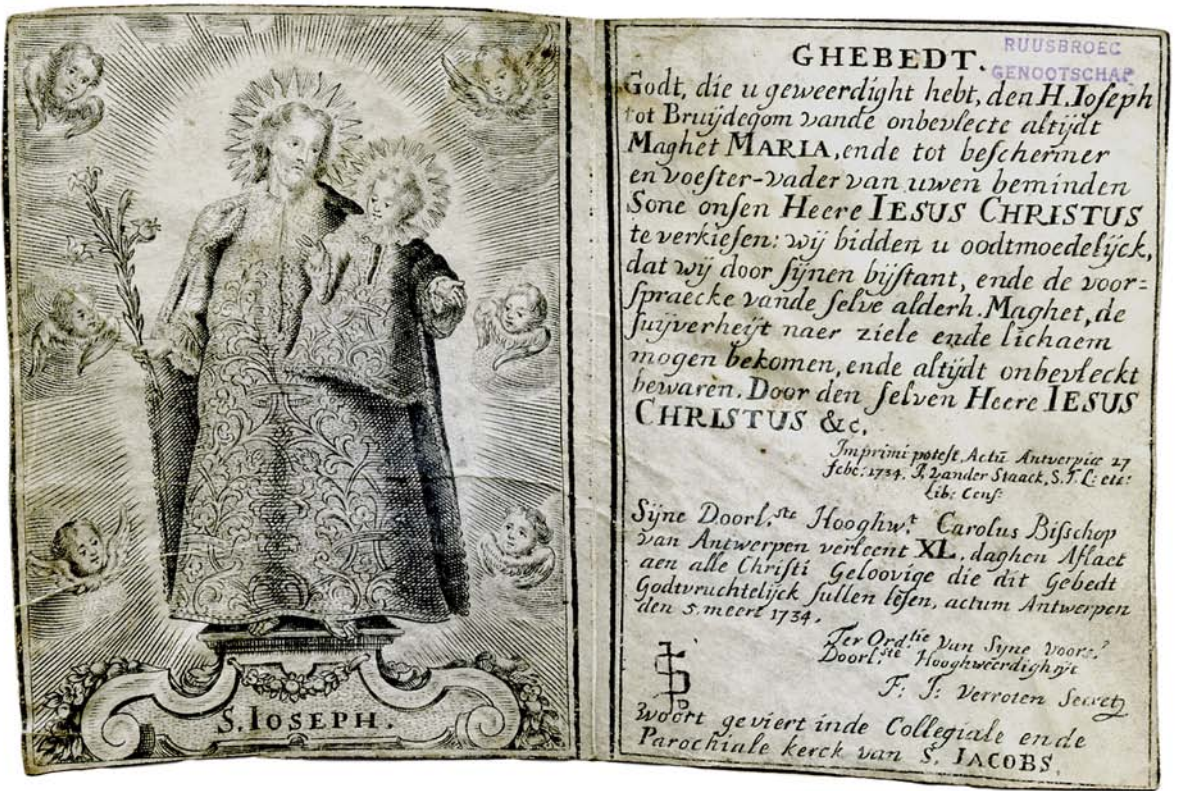 S. IOSEPH.
RUUSBROEC
GENOOTSCHAP
GHEBEDT.
Godt, die u geweerdight hebt, den H. Ioseph
tot Bruijdegom vande onbevlecte altijdt
Maghet MARIA, ende tot beschermer
en voester-vader van uwen beminden
Sone onsen Heere IESUS CHRISTUS
te verkiesen: wij bidden u oodtmoedelijck,
dat wij door sijnen bijstant, ende de voor=
spraecke vande selve alderh. Maghet, de
suijverheijt naer ziele ende lichaem
mogen bekomen, ende altijdt onbevleckt
bewaren. Door den selven Heere IESUS
CHRISTUS &c.
Imprimi potest, Actū Antverpiæ 27
febr: 1734. J. vander Staack, S. T. L: etc:
Lib: Cens:
Sijne Doorl.ste Hooghw.t Carolus Bisschop
van Antwerpen verleent XL. daghen Aflaet
aen alle Christi Geloovige die dit Gebedt
Godtvruchtelijck sullen lesen, actum Antwerpen
den 5. meert 1734.
Ter Ord.tie Van Sijne voors.
Doorl.ste Hooghweerdigheijt
F: J: Verroten Secret
Woort geviert inde Collegiale ende
Parochiale kerck van S. IACOBS.